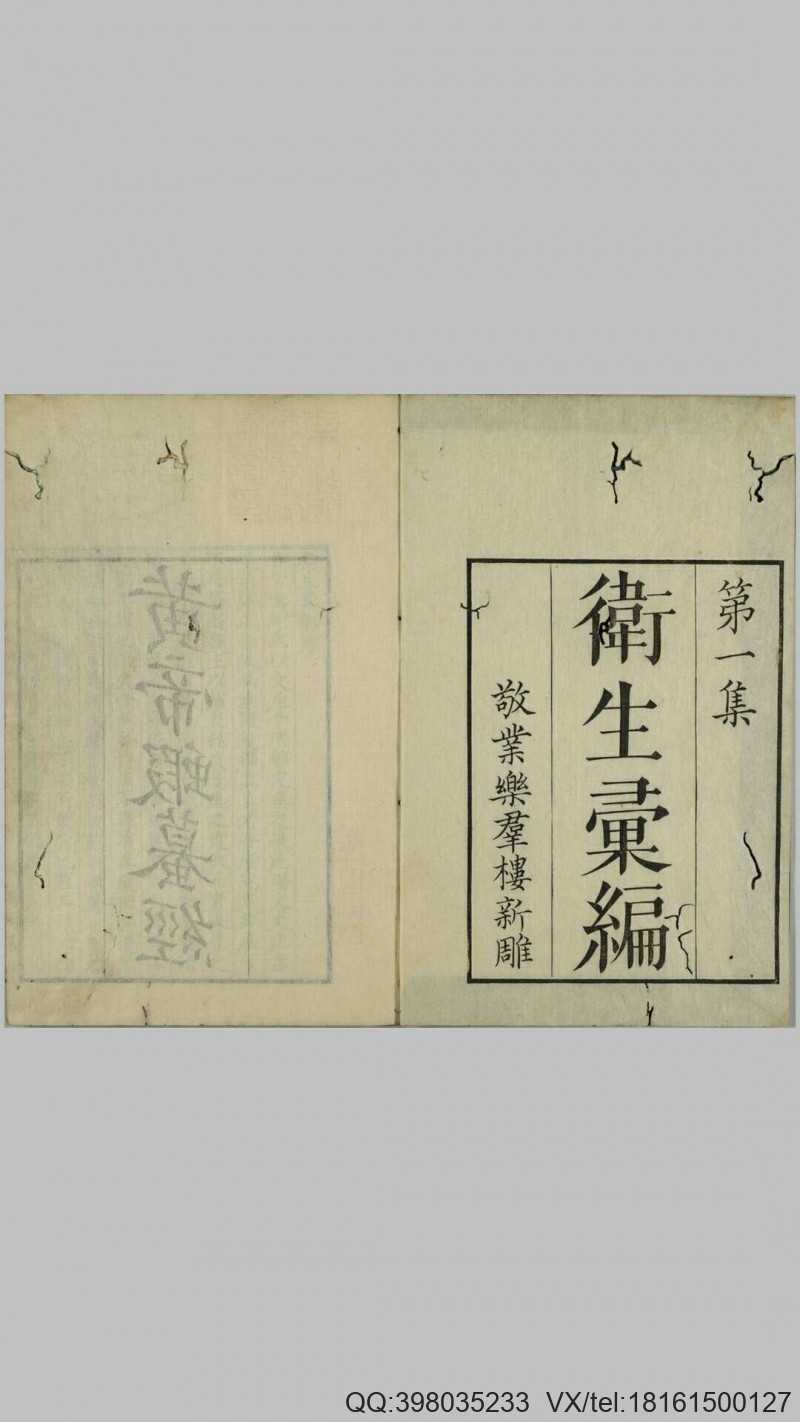 第一集
衛生彙編
敬業樂羣樓新雕
黃帝蝦蟇經
QQ:398035233 VX/tel:18161500127